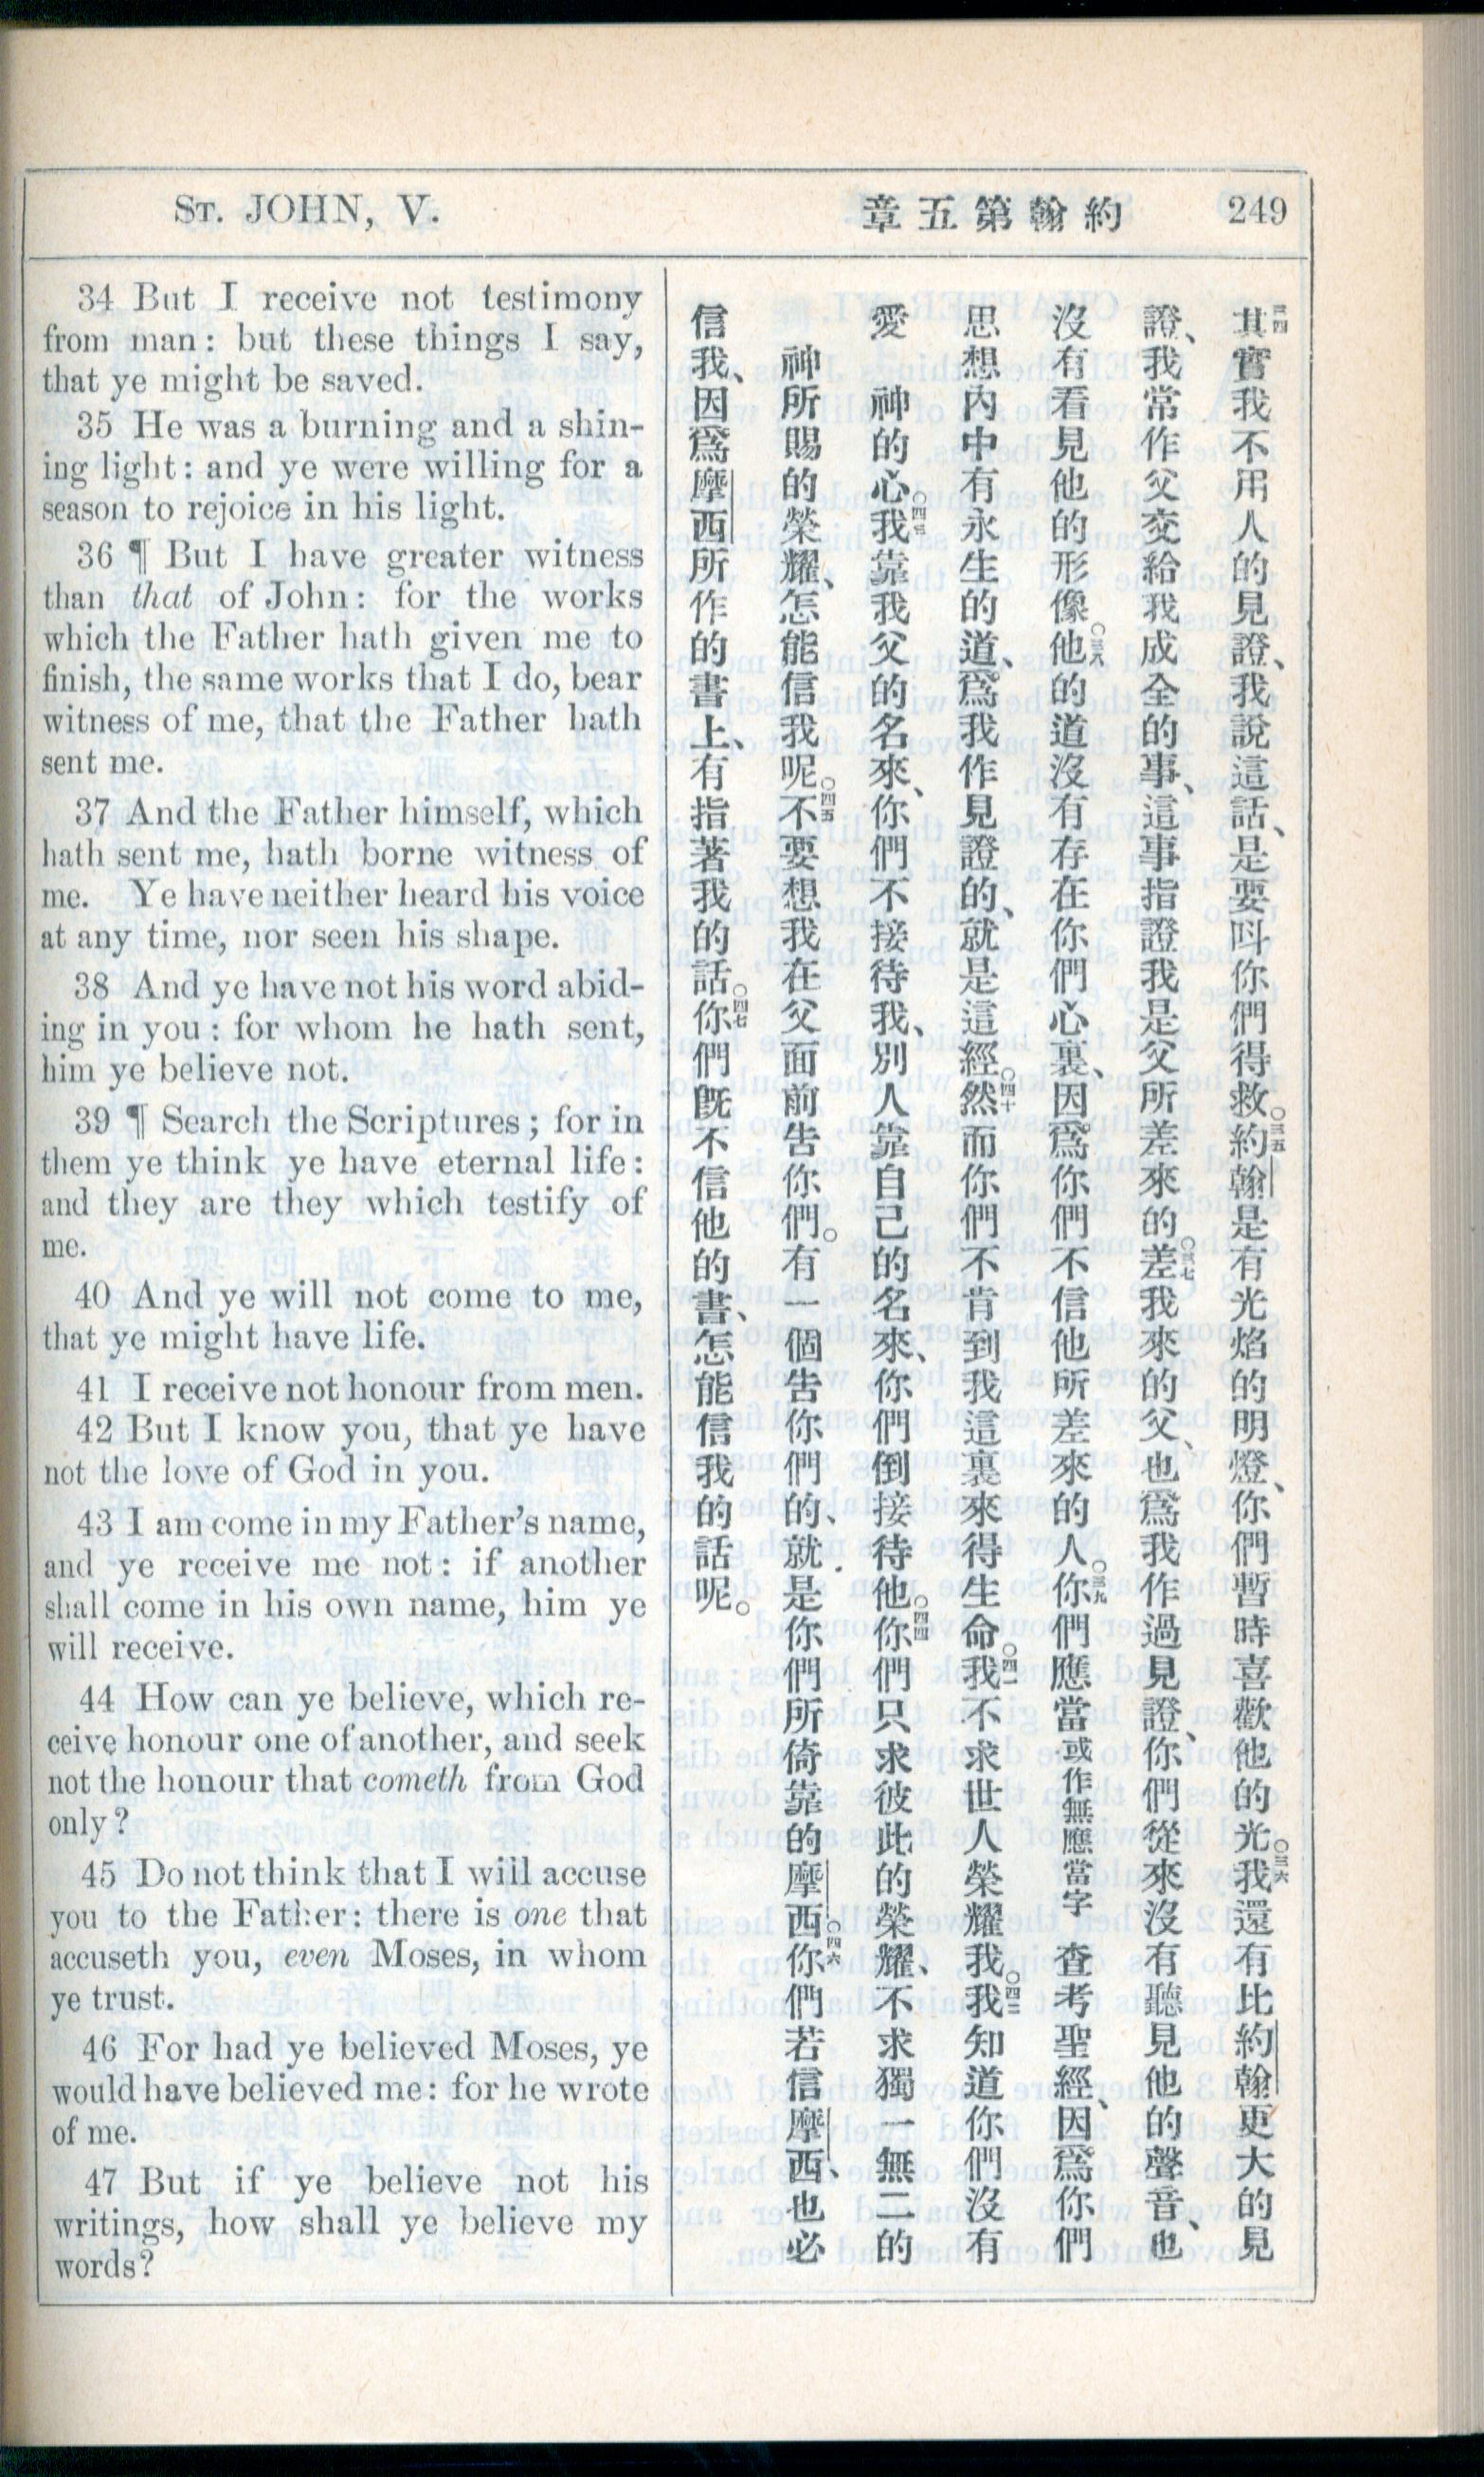 ST. JOHN, V.
約翰第五章
249
34 But I receive not testimony
from man: but these things I say,
that ye might be saved.
35 He was a burning and a shin-
ing light: and ye were willing for a
season to rejoice in his light.
36 ¶ But I have greater witness
than that of John: for the works
which the Father hath given me to
finish, the same works that I do, bear
witness of me, that the Father hath
sent me.
37 And the Father himself, which
hath sent me, hath borne witness of
me. Ye have neither heard his voice
at any time, nor seen his shape.
38 And ye have not his word abid-
ing in you: for whom he hath sent,
him ye believe not.
39 ¶ Search the Scriptures; for in
them ye think ye have eternal life:
and they are they which testify of
me.
40 And ye will not come to me,
that ye might have life.
41 I receive not honour from men.
42 But I know you, that ye have
not the love of God in you.
43 I am come in my Father's name,
and ye receive me not: if another
shall come in his own name, him ye
will receive.
44 How can ye believe, which re-
ceive honour one of another, and seek
not the honour that cometh from God
only?
45 Do not think that I will accuse
you to the Father: there is one that
accuseth you, even Moses, in whom
ye trust.
46 For had ye believed Moses, ye
would have believed me: for he wrote
of me.
47 But if ye believe not his
writings, how shall ye believe my
words?
三四其實我不用人的見證、我說這話、是要叫你們得救。三五約翰是有光焰的明燈、你們暫時喜歡他的光。三六我還有比約翰更大的見
證、我常作父交給我成全的事、這事指證我是父所差來的。三七差我來的父、也爲我作過見證、你們從來沒有聽見他的聲音、也
沒有看見他的形像。三八他的道沒有存在你們心裏、因爲你們不信他所差來的人。三九你們應當或作無應當字 查考聖經、因爲你們
思想內中有永生的道、爲我作見證的、就是這經。四十然而你們不肯到我這裏來得生命。四一我不求世人榮耀我。四二我知道你們沒有
愛 神的心。四三我靠我父的名來、你們不接待我、別人靠自己的名來、你們倒接待他。四四你們只求彼此的榮耀、不求獨一無二的
神所賜的榮耀、怎能信我呢。四五不要想我在父面前告你們。有一個告你們的、就是你們所倚靠的摩西。四六你們若信摩西、也必
信我、因爲摩西所作的書上、有指著我的話。四七你們旣不信他的書、怎能信我的話呢。